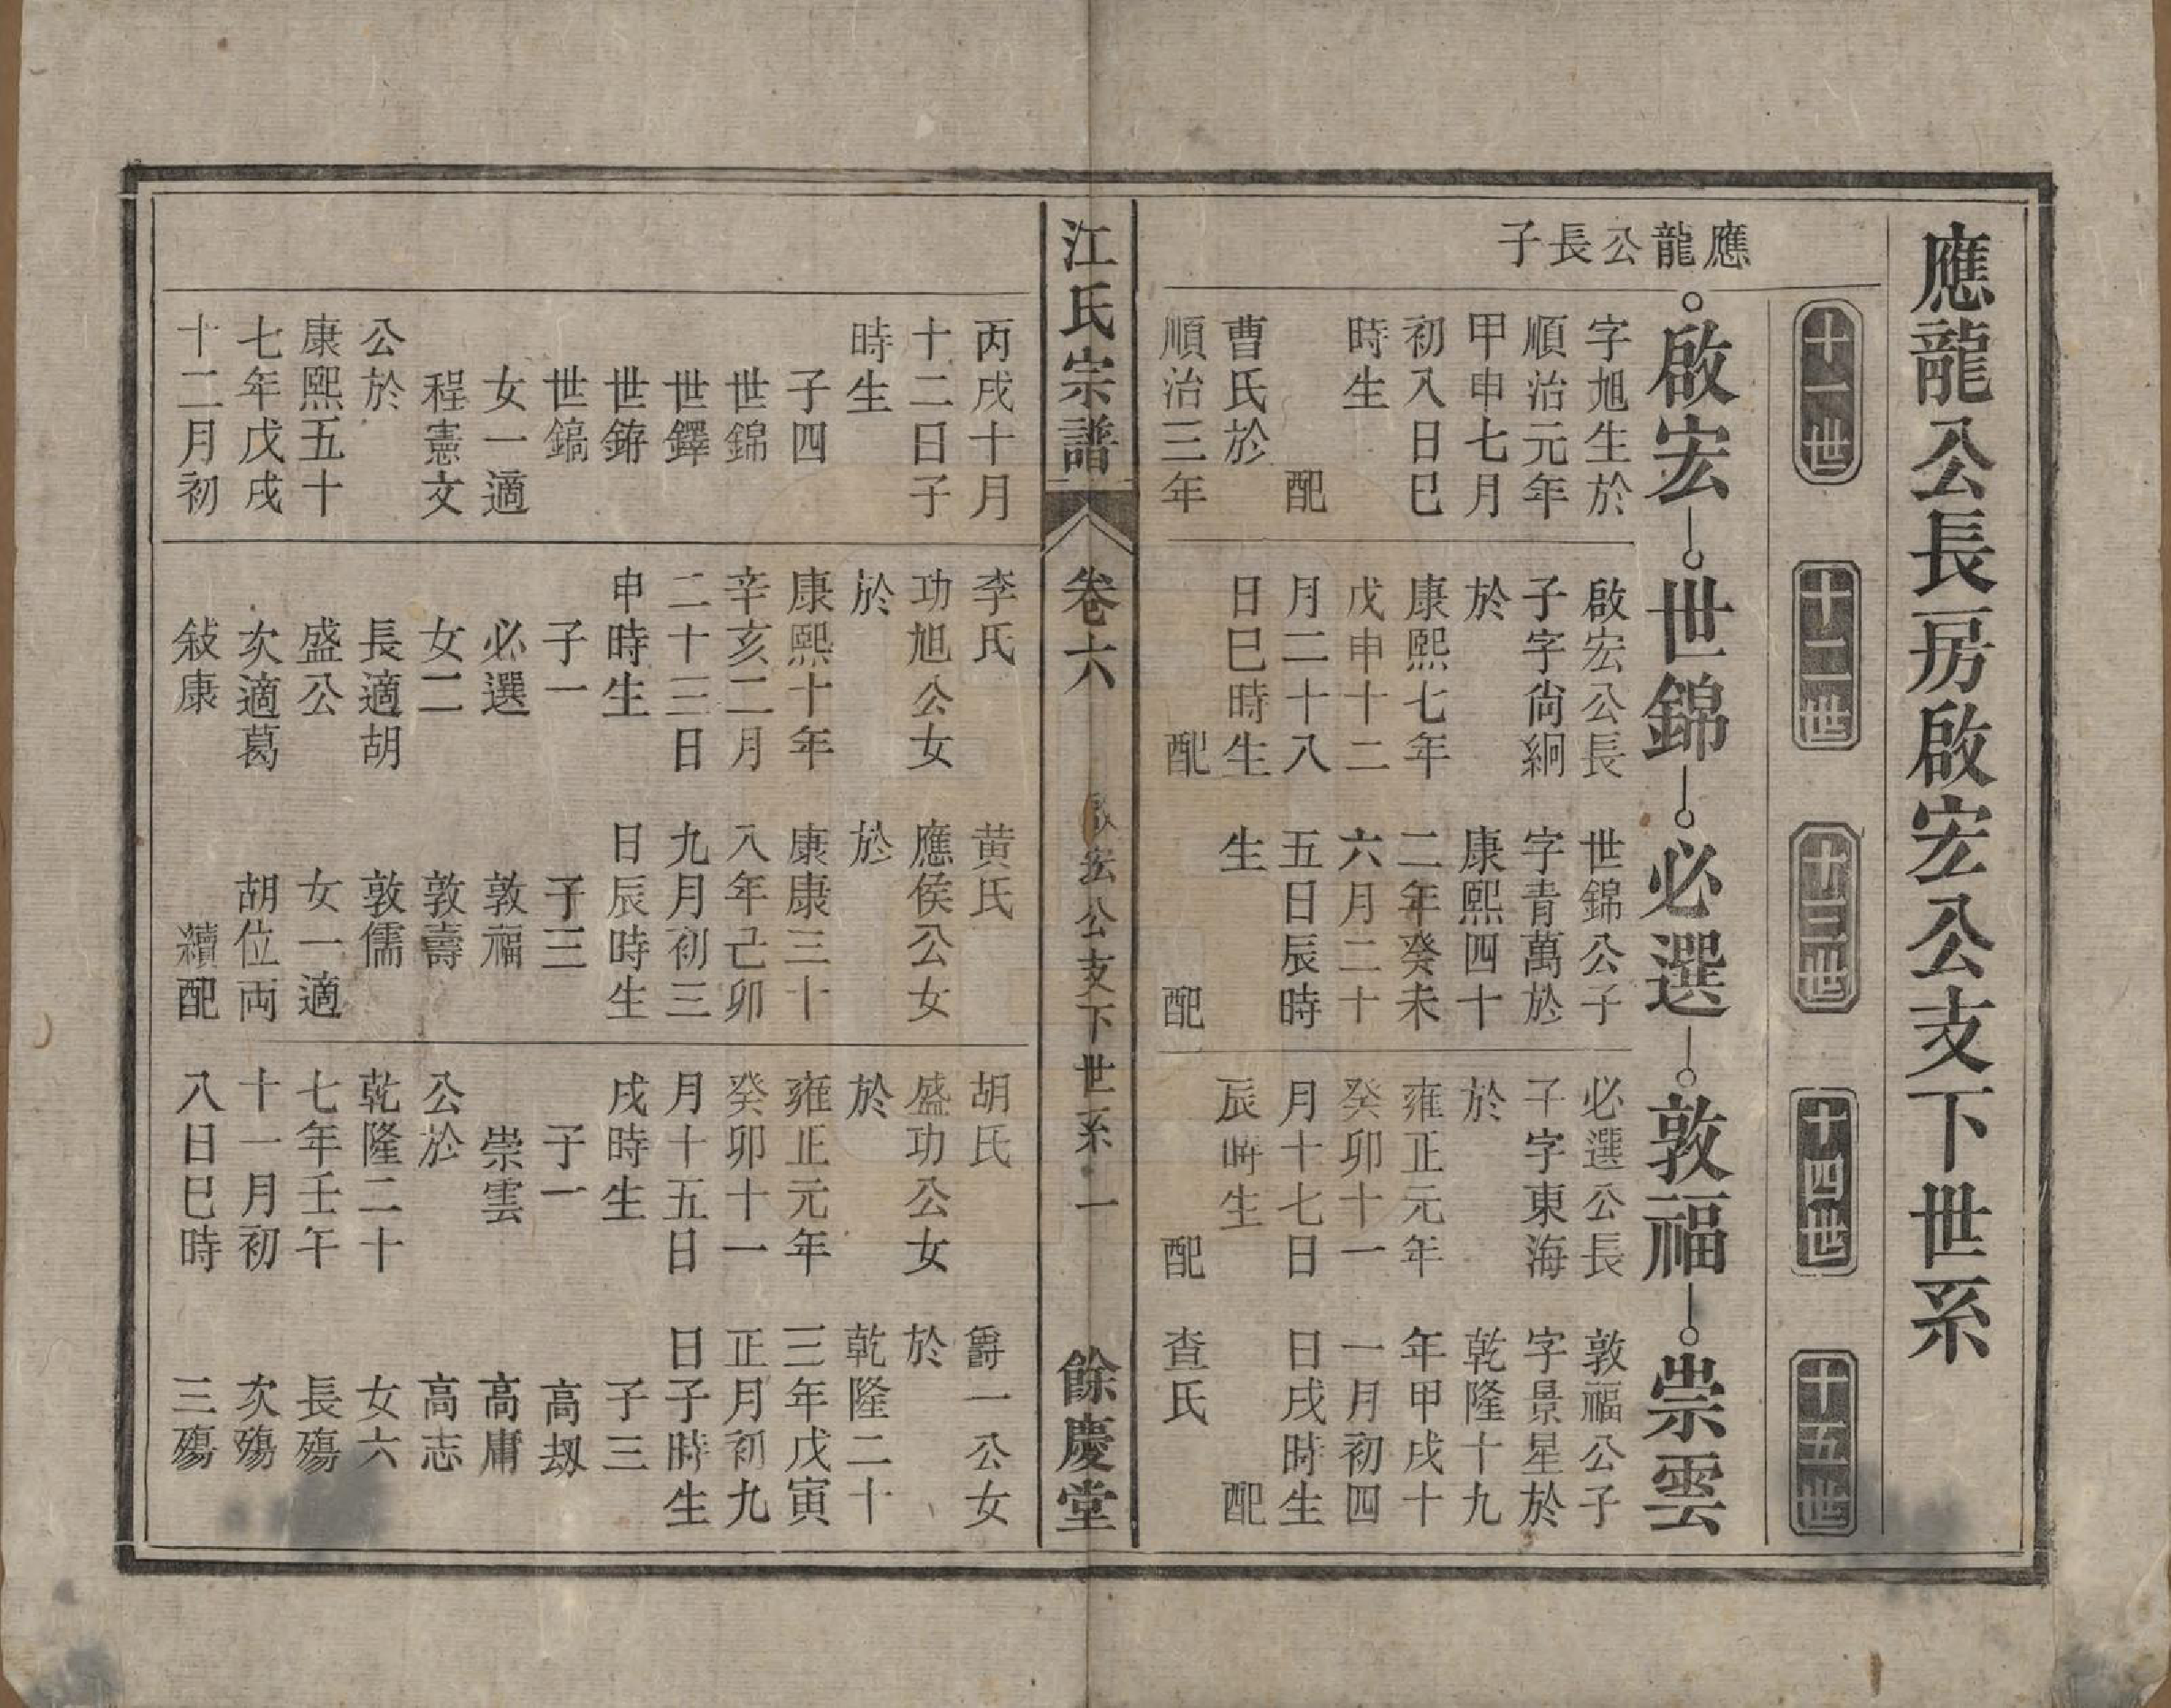 應龍公長房啟宏公支下世系
十一世
十二世
十三世
十四世
十五世
應龍公長子
啟宏
世錦
必選
敦福
崇雲
字旭生於
順治元年
甲申七月
初八日巳
時生
配
曹氏於
順治三年
啟宏公長
子字尚絅
於
康熙七年
戊申十二
月二十八
日巳時生
配
世錦公子
字青萬於
康熙四十
二年癸未
六月二十
五日辰時
生
配
必選公長
子字東海
於
雍正元年
癸卯十一
月十七日
辰時生
配
敦福公子
字景星於
乾隆十九
年甲戌十
一月初四
日戌時生
配
查氏
江氏宗譜
卷六
啟宏公支下世系
一
餘慶堂
丙戌十月
十二日子
時生
子四
世錦
世鐸
世鋅
世鎬
女一適
程憲文
公於
康熙五十
七年戊戌
十二月初
李氏
功旭公女
於
康熙十年
辛亥二月
二十三日
申時生
子一
必選
女二
長適胡
盛公
次適葛
敍康
黃氏
應侯公女
於
康康三十
八年己卯
九月初三
日辰時生
子三
敦福
敦壽
敦儒
女一適
胡位両
續配
胡氏
盛功公女
於
雍正元年
癸卯十一
月十五日
戌時生
子一
崇雲
公於
乾隆二十
七年壬午
十一月初
八日巳時
爵一公女
於
乾隆二十
三年戊寅
正月初九
日子時生
子三
高刼
高庸
高志
女六
長殤
次殤
三殤